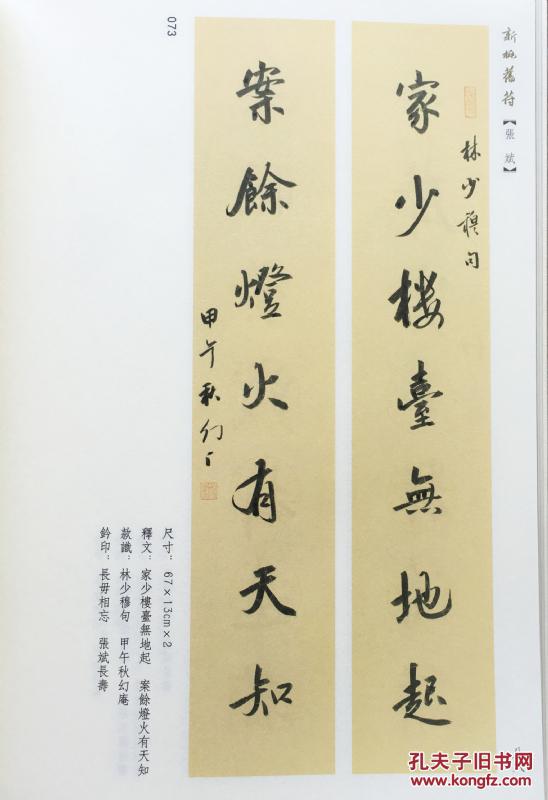 新桃舊符【張斌】
林少穆句
家少樓臺無地起
案餘燈火有天知
甲午秋幻
尺寸：67×13cm×2
釋文：家少樓臺無地起 案餘燈火有天知
款識：林少穆句 甲午秋幻庵
鈐印：長毋相忘 張斌長壽
073
孔夫子旧书网
kongfz.com